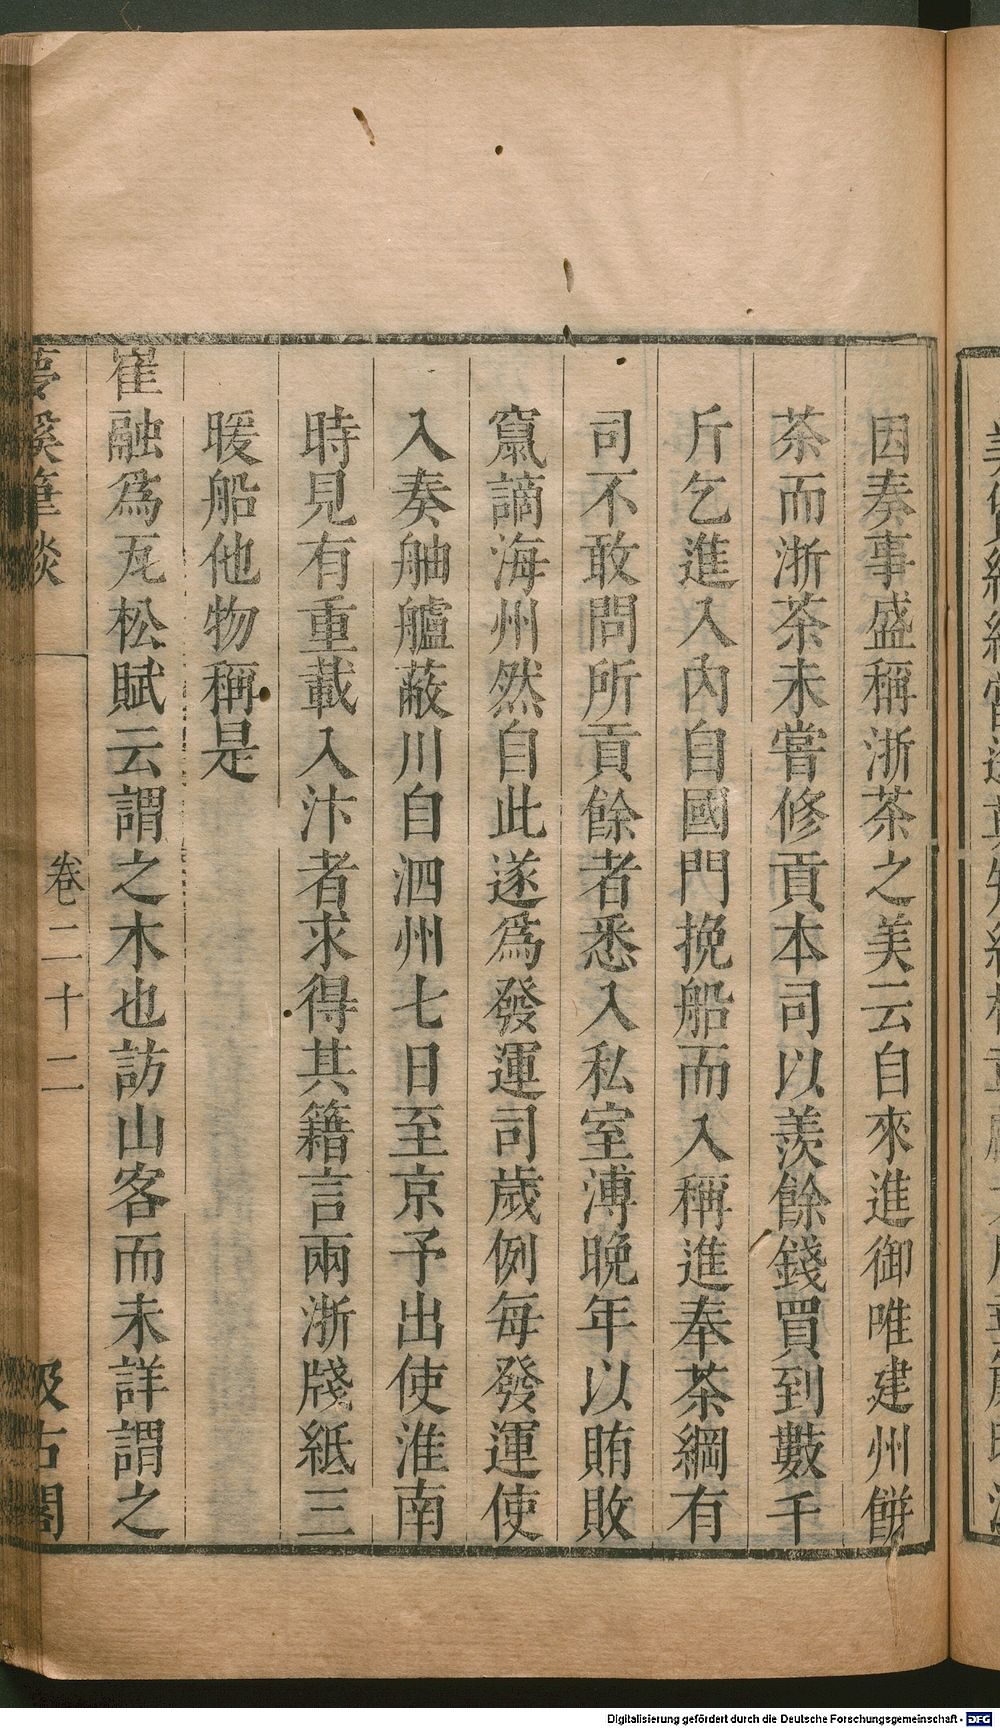 因奏事盛稱浙茶之美云自來進御唯建州餅
茶而浙茶未嘗修貢本司以羨餘錢買到數千
斤乞進入內自國門挽船而入稱進奉茶綱有
司不敢問所貢餘者悉入私室溥晚年以賄敗
竄謫海州然自此遂爲發運司歲例每發運使
入奏舳艫蔽川自泗州七日至京予出使淮南
時見有重載入汴者求得其籍言兩浙牋紙三
暖船他物稱是
崔融爲瓦松賦云謂之木也訪山客而未詳謂之
夢溪筆談
卷二十二
汲古閣
Digitalisierung gefördert durch die Deutsche Forschungsgemeinschaft - DFG